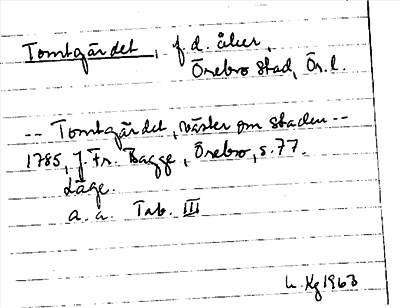 Tomtgärdet, f.d. åker,
Örebro stad, Ör.l.
-- Tomtgärdet, väster om staden --
1785, J. Fr. Bagge, Örebro, s. 77.
Läge.
a. a. Tab. III
L. Kg 1963